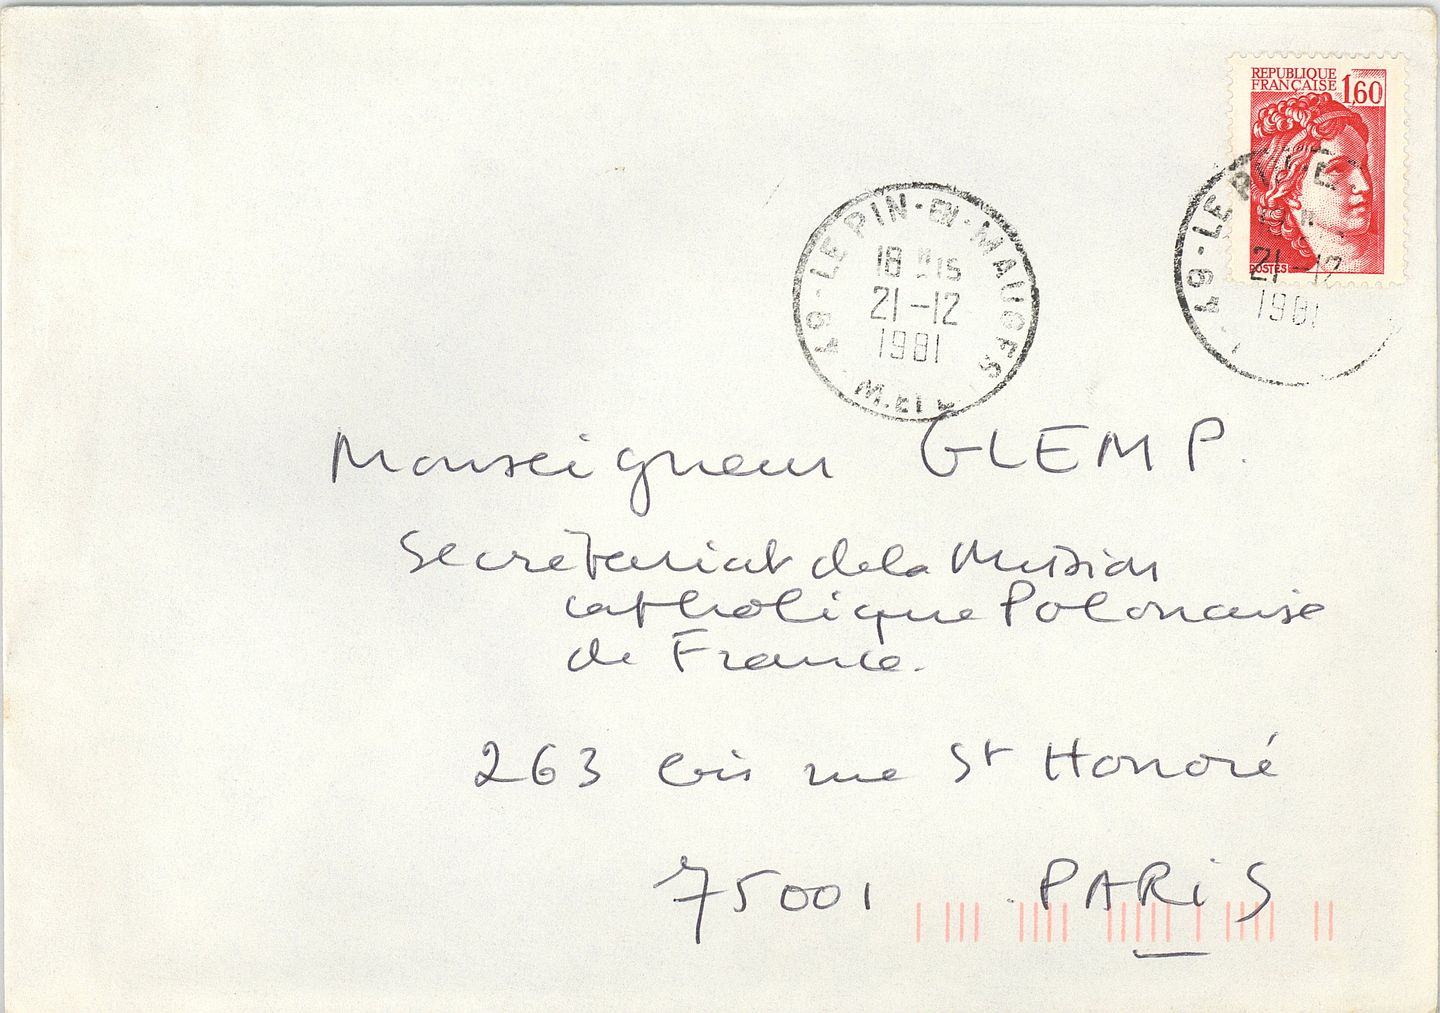 REPUBLIQUE
FRANÇAISE 1,60
POSTES
49 - LE PIN - EN - MAUGES
18 H 15
21 - 12
1981
M. ET L.
49 - LE PIN-E
21 - 12
1981
Monseigneur GLEMP.
Secretariat de la Mission
catholique Polonaise
de France.
263 bis rue St Honoré
75001 PARIS